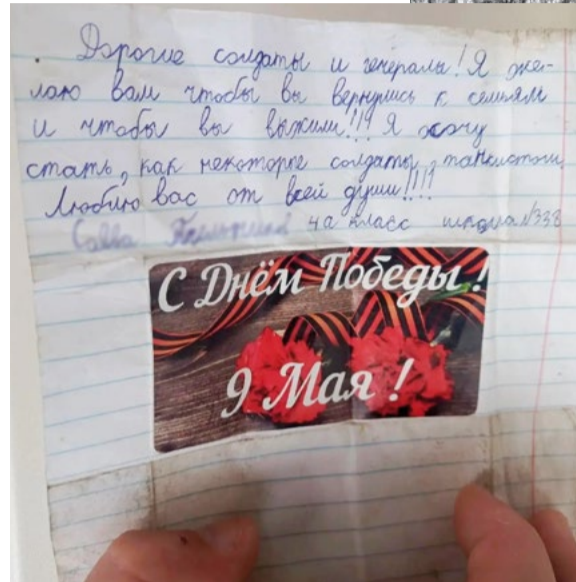 Дорогие солдаты и генералы! Я же-
лаю вам чтобы вы вернулись к семьям
и чтобы вы выжили!!! Я хочу
стать, как некоторые солдаты, танкистом.
Люблю вас от всей души!!!!
4а класс школа №338
С Днём Победы!
9 Мая!